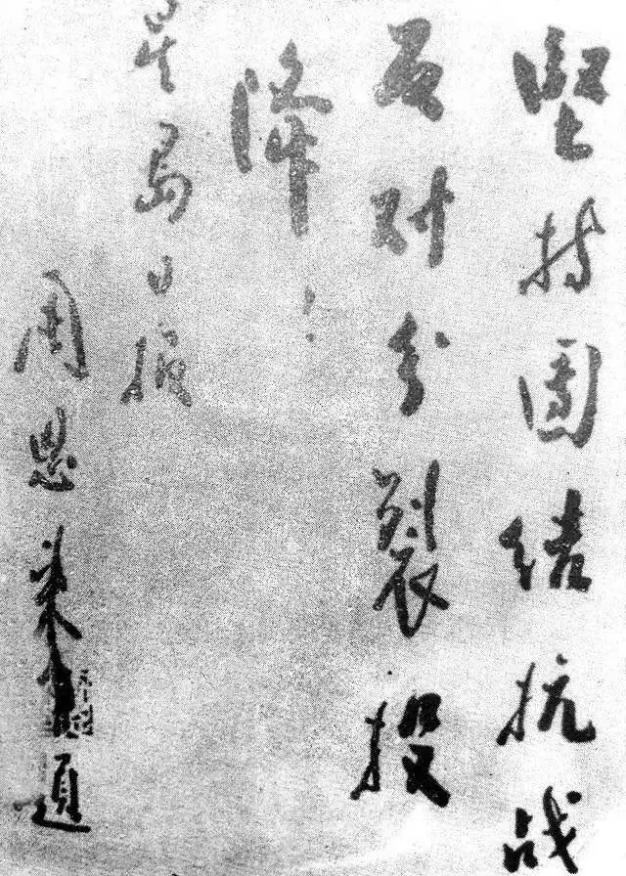 坚持团结抗战
反对分裂投
降！
星岛日报
周恩来